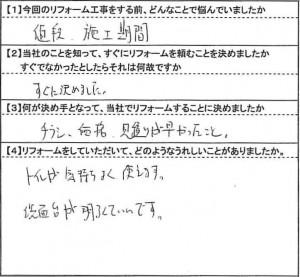 【1】今回のリフォーム工事をする前、どんなことで悩んでいましたか
値段、施工期間
【2】当社のことを知って、すぐにリフォームを頼むことを決めましたか
すぐでなかったとしたらそれは何故ですか
すぐに決めました。
【3】何が決め手となって、当社でリフォームすることに決めましたか
チラシ、価格、見積りが早かったこと。
【4】リフォームをしていただいて、どのようなうれしいことがありましたか。
トイレが気持ちよく使えます。
洗面台が明るくていいです。